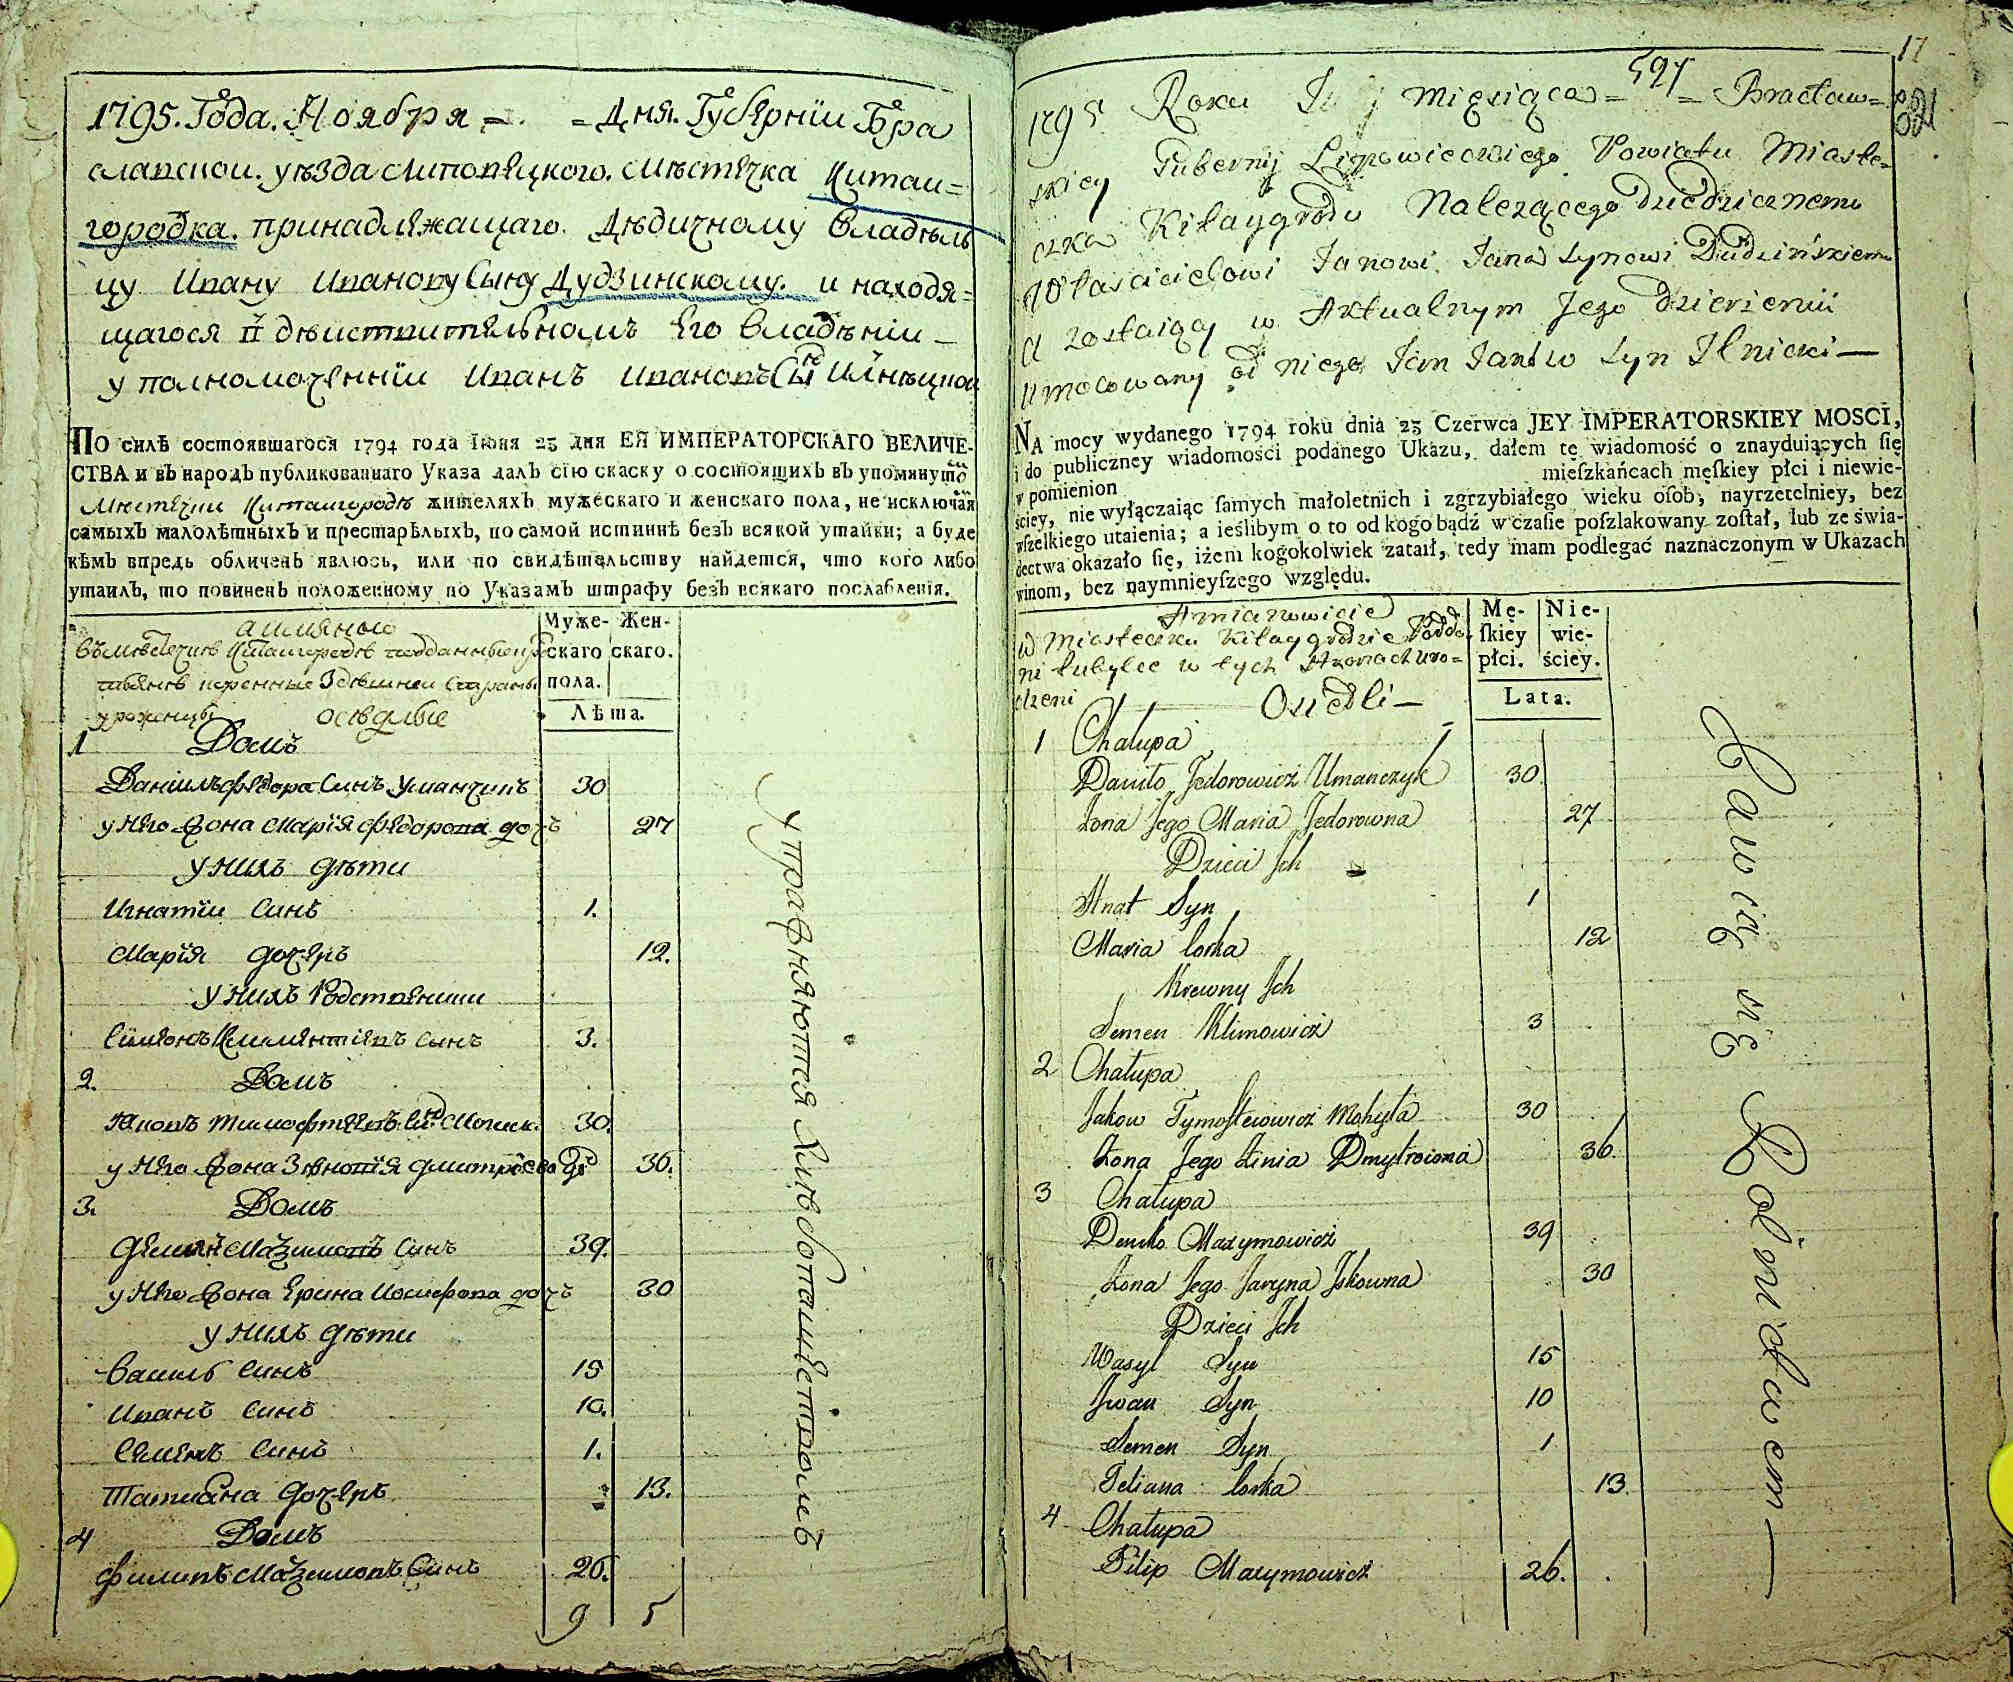 1795. Года. Ноября = . = Дня. Губерніи Бра
славской. уѣзда Липовецкого. мѣстечка Китай=
городка. принадлежащаго. Дѣдичному владѣль
цу Ивану Иванову Сыну Дудзинскому. и находя=
щагося в дѣиствительномъ Его владѣніи —
уполномоченнїи Иванъ Ивановъ Сын Илнѣцкои
По силѣ состоявшагося 1794 года Іюня 23 дня ЕЯ ИМПЕРАТОРСКАГО ВЕЛИЧЕ-
СТВА и въ народъ публикованнаго Указа далъ сію скаску о состоящихъ въ упомянутό
Мѣстечки Китайгородѣ жителяхъ мужескаго и женскаго пола, не исключая
самыхъ малолѣтныхъ и престарѣлыхъ, по самой истиннѣ безъ всякой утайки; а буде
кѣмъ впредь обличенъ явлюсь, или по свидѣтельству найдется, что кого либо
утаилъ, то повиненъ положенному по Указамъ штрафу безъ всякаго послабленія.
а имянно
въ мѣстечкѣ Китайгородѣ подданныи кре
тьянѣ коренные Здешней Страны
уроженцы осѣдлые
Муже-скаго пола. Жен-скаго.
Лѣта.
1 Домъ
Даніилъ Федора Синъ Уманчикъ 30
у Него Жона Марія Федорова дочъ 27
у нихъ дѣти
Игнатїи Синъ 1.
Марїя дочеръ 12.
у нихъ Родственики
Симеонъ Климентіевъ сынъ 3.
2. Домъ
Яковъ Тимофтеевъ Сн 30.
у Него Жона Зѣновія Дмитріева 36.
3. Домъ
Демян Мазимовъ Синъ 39.
у Него Жона Ерина Иосифова дочъ 30
у нихъ дѣти
Василь Синъ 15
Иванъ Синъ 10.
Семенъ Синъ 1.
Татиана дочеръ 13.
4 Домъ
Филипъ Мазимовъ Синъ 26.
9 5
управняются хлѣбопашеством
17
597
1795 Roku miesiąca = = Bracław=
skiey Gubernij Lipowieckiego Powiatu Miaste=
czka Kitaygrodu Należącego Dziedzicznemu
Włascicielowi Janowi Jana Synowi Dudzińskiemu
a zostaiący w Aktualnym Jego dzierżeniu
umocowany od niego Jan Janow Syn Ilnicki —
NA mocy wydanego 1794 roku dnia 23 Czerwca JEY IMPERATORSKIEY MOSCI,
i do publiczney wiadomości podanego Ukazu, dałem tę wiadomość o znayduiących ſię
w pomienion mieſzkańcach męſkiey płci i niewie-
ściey, nie wyłączaiąc ſamych małoletnich i zgrzybiałego wieku oſob, nayrzetelniey, bez
wſzelkiego utaienia; a ieślibym o to od kogo bądź w czaſie poſzlakowany zoſtał, lub ze świa-
dectwa okazało ſię, iżem kogokolwiek zataił, tedy mam podlegać naznaczonym w Ukazach
winom, bez naymnieyſzego względu.
A mianowicie
w Miasteczku Kitaygrodzie Podda
ni tubylce w tych stronach uro=
dzeni Osiedli —
Mę-ſkiey płci. Nie-wie-ściey.
Lata.
1 Chałupa
Daniło Fedorowicz Umanczyk 30.
Żona Jego Maria Fedorowna 27
Dzieci Ich
Hnat Syn 1
Maria Corka 12
Krewny Ich
Semen Klimowicz 3
2 Chałupa
Jakow Tymofteiowicz Mohyła 30
Żona Jego Zinia Dmytrowna 36.
3 Chałupa
Demko Maxymowicz 39
Żona Jego Jaryna Iskowna 30
Dzieci Ich
Wasyl Syn 15
Iwan Syn 10
Semen Syn 1
Teliana Corka 13.
4 Chałupa
Filip Maxymowicz 26.
Bawią się Rolnictwem —